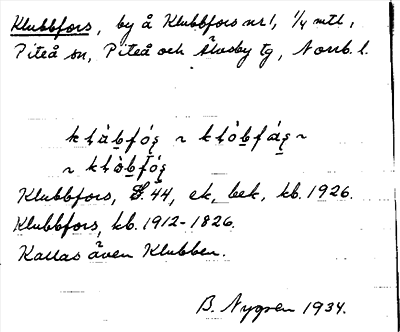 Klubbfors, by å Klubbfors nr 1, 1/4 mtl,
Piteå sn, Piteå och Älvsby tg, Norrb. l.
~ ~
~
Klubbfors, 44, ek, bek, kb. 1926.
Klubbfors, kb. 1912-1826.
Kallas även Klubben.
B. Nygren 1934.